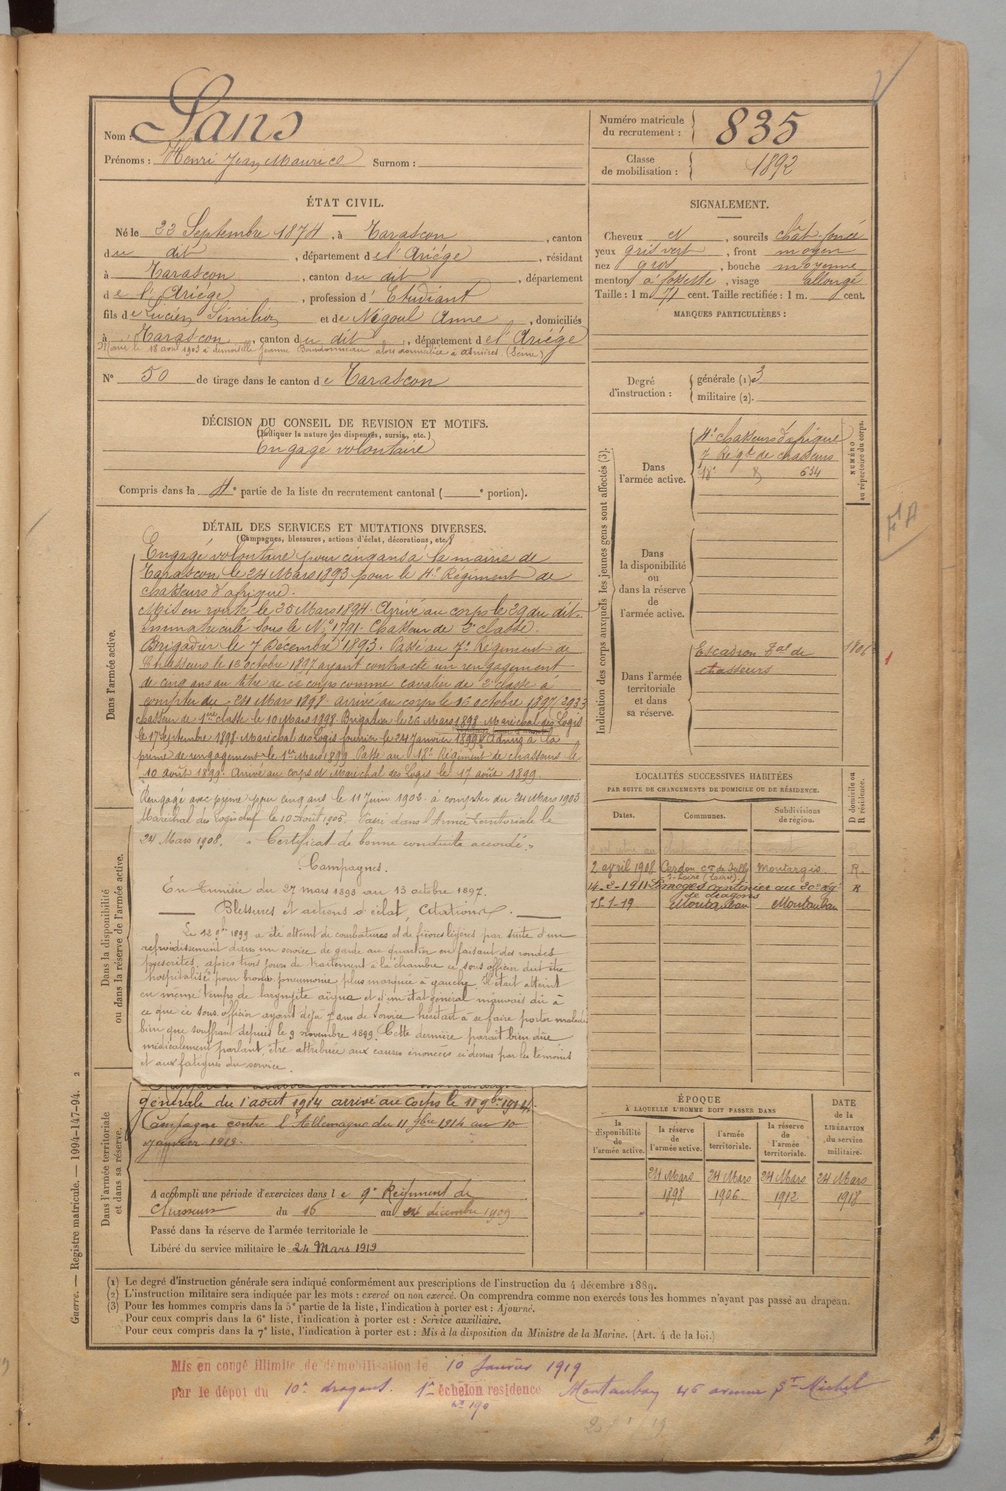 Nom : Sans
Prénoms : Henri Jean Maurice Surnom :
Numéro matricule du recrutement : 835
Classe de mobilisation : 1892
ÉTAT CIVIL.
Né le 23 Septembre 1874, à Tarascon, canton
du dit, département de l'Ariége, résidant
à Tarascon, canton du dit, département
de l'Ariége, profession d'Etudiant
fils de Lucien Similien et de Nigoul Anne, domiciliés
à Tarascon, canton du dit, département de l'Ariége
Marié le 18 avril 1903 à demoiselle Jeanne alors domiciliée à Asnières (Seine)
N° 50 de tirage dans le canton de Tarascon
SIGNALEMENT.
Cheveux et, sourcils chât. foncé
yeux gris vert, front moyen
nez gros, bouche moyenne
menton à fossette, visage allongé
Taille : 1 m. 71 cent. Taille rectifiée : 1 m. cent.
MARQUES PARTICULIÈRES :
Degré d'instruction : générale (1) 3
militaire (2).
DÉCISION DU CONSEIL DE REVISION ET MOTIFS.
(Indiquer la nature des dispenses, sursis, etc.)
Engagé volontaire
Compris dans la 4e partie de la liste du recrutement cantonal ( e portion).
DÉTAIL DES SERVICES ET MUTATIONS DIVERSES.
(Campagnes, blessures, actions d'éclat, décorations, etc.)
Dans l'armée active.
Engagé volontaire pour cinq ans à la mairie de
Tarascon le 24 Mars 1893 pour le 4e Régiment de
chasseurs d'afrique.
Mis en route le 25 Mars 1893. Arrivé au corps le 29 du dit.
Immatriculé sous le No 1791. Chasseur de 2e classe.
Brigadier le 7 Décembre 1893. Passé au 7e Régiment de
Chasseurs le 16 octobre 1897 ayant contracté un rengagement
de cinq ans au titre de ce corps comme cavalier de 2e classe à
compter du 24 Mars 1898. arrivé au corps le 16 octobre 1897
chasseur de 1ère classe le 10 Mars 1898. Brigadier le 26 Mars 1898. Maréchal des Logis
le 17 septembre 1898. Maréchal des Logis fourrier le 24 Janvier 1899. Admis à la
prime de rengagement le 1er Mars 1899. Passé au 18e Régiment de chasseurs le
10 août 1899. Arrivé au corps et Maréchal des Logis le 17 août 1899
Rengagé avec prime pour cinq ans le 11 Juin 1903 à compter du 24 Mars 1903.
Maréchal des Logis chef le 10 Août 1906. Passé dans l'Armée Territoriale le
24 Mars 1908. « Certificat de bonne conduite accordé. »
Campagnes.
En Tunisie du 27 mars 1893 au 13 octobre 1897.
Blessures et actions d'éclat, Citations.
Le 12 9bre 1899 a été atteint de courbatures et de fièvres légères par suite d'un
refroidissement dans un service de garde au quartier en faisant des rondes
prescrites, après trois jours de traitement à la chambre ce sous officier dut être
hospitalisé pour broncho pneumonie plus marquée à gauche. Il était atteint
en même temps de laryngite aigue et d'un état général mauvais dû à
ce que ce sous officier ayant déjà 7 ans de service hésitait à se faire porter malade
bien que souffrant depuis le 9 novembre 1899. Cette dernière parait bien être
médicalement parlant être attribuée aux causes énoncées ci-dessus par les témoins
et aux fatigues du service.
Dans la disponibilité ou dans la réserve de l'armée active.
Dans l'armée territoriale et dans sa réserve.
générale du 1 aout 1914 arrivé au Corps le 11 9bre 1914.
Campagne contre l'Allemagne du 11 9bre 1914 au 10
Janvier 1919.
A accompli une période d'exercices dans le 9e Régiment de
Chasseurs du 16 au 24 décembre 1909
Passé dans la réserve de l'armée territoriale le
Libéré du service militaire le 24 Mars 1919
Indication des corps auxquels les jeunes gens sont affectés (3).
NUMÉRO au répertoire du corps.
Dans l'armée active.
4e chasseurs d'afrique
7 Reg't de chasseurs
18e d° 634
Dans la disponibilité ou dans la réserve de l'armée active.
Dans l'armée territoriale et dans sa réserve.
Escadron Tal de
chasseurs
LOCALITÉS SUCCESSIVES HABITÉES
PAR SUITE DE CHANGEMENTS DE DOMICILE OU DE RÉSIDENCE.
Dates. Communes. Subdivisions de région. D domicile ou R résidence.
2 avril 1908 Cerdon cton de Sully s/Loire (Loiret) Montargis R.
14-2-1911 Limoges cantinier au 20e Rgt de dragons R
15-1-19 Montauban Montauban
ÉPOQUE
À LAQUELLE L'HOMME DOIT PASSER DANS
la disponibilité de l'armée active.
la réserve de l'armée active.
l'armée territoriale.
la réserve de l'armée territoriale.
DATE de la LIBÉRATION du service militaire.
24 Mars 1898
24 Mars 1906
24 Mars 1912
24 Mars 1918
Guerre. — Registre matricule. — 1994-147-94. 2
(1) Le degré d'instruction générale sera indiqué conformément aux prescriptions de l'instruction du 4 décembre 1889.
(2) L'instruction militaire sera indiquée par les mots : exercé ou non exercé. On comprendra comme non exercés tous les hommes n'ayant pas passé au drapeau.
(3) Pour les hommes compris dans la 5e partie de la liste, l'indication à porter est : Ajourné.
Pour ceux compris dans la 6e liste, l'indication à porter est : Service auxiliaire.
Pour ceux compris dans la 7e liste, l'indication à porter est : Mis à la disposition du Ministre de la Marine. (Art. 4 de la loi.)
Mis en congé illimité de démobilisation le 10 Janvier 1919
par le dépot du 10e dragons. 1er échelon residence Montauban 46 avenue St Michel
n° 190